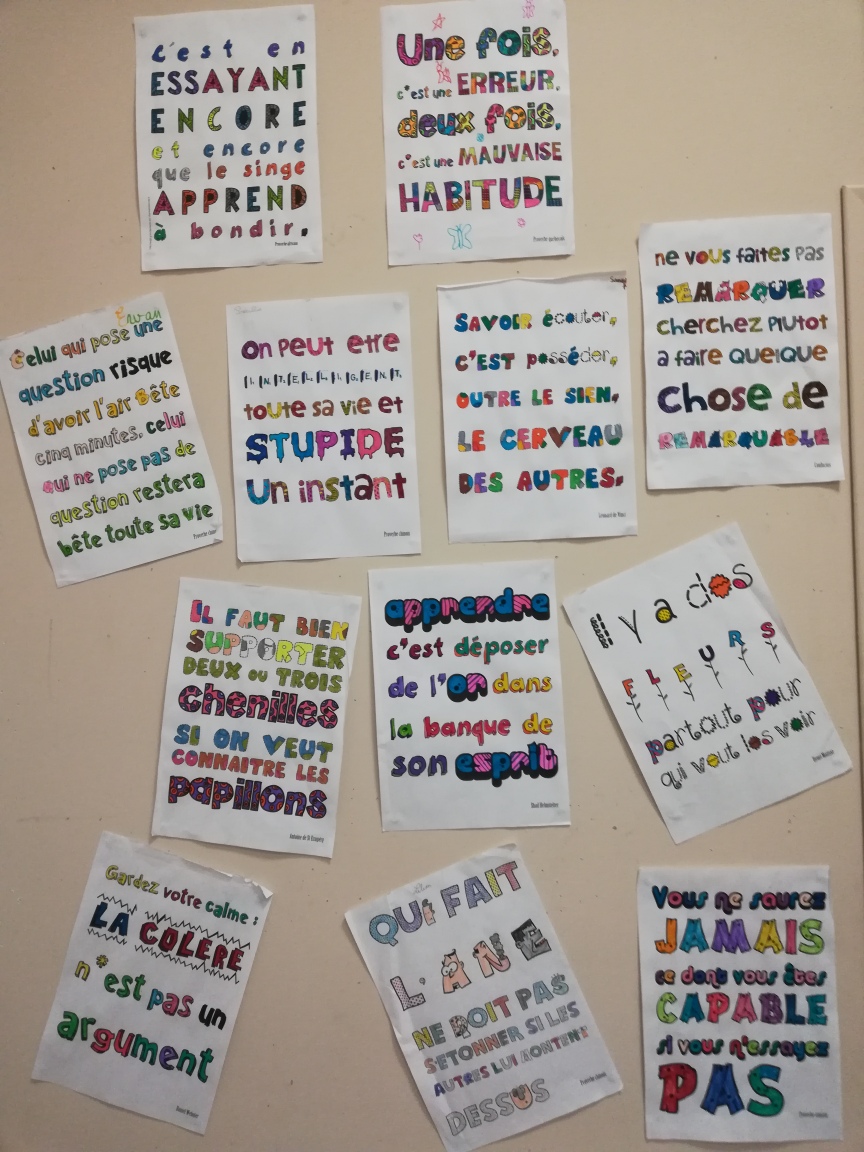 c'est en
ESSAYANT
ENCORE
et encore
que le singe
APPREND
à bondir.
Proverbe africain
Une fois,
c'est une ERREUR,
deux fois,
c'est une MAUVAISE
HABITUDE
ne vous faites pas
REMARQUER
cherchez plutot
a faire quelque
chose de
REMARQUABLE
Celui qui pose une
question risque
d'avoir l'air bête
cinq minutes, celui
qui ne pose pas de
question restera
bête toute sa vie
Proverbe chinois
On peut etre
I.N.T.E.L.L.I.G.E.N.T.
toute sa vie et
STUPIDE
Un instant
Proverbe chinois
SAVOIR écouter,
C'EST posséder,
OUTRE LE SIEN,
LE CERVEAU
DES AUTRES.
Léonard de Vinci
IL FAUT BIEN
SUPPORTER
DEUX OU TROIS
chenilles
SI ON VEUT
CONNAITRE LES
papillons
Antoine de St Exupéry
apprendre
c'est déposer
de l'or dans
la banque de
son esprit
Il y a des
FLEURS
partout pour
qui veut les voir
Henri Matisse
Gardez votre calme :
LA COLERE
n'est pas un
argument
QUI FAIT
L'ANE
NE DOIT PAS
S'ETONNER SI LES
AUTRES LUI MONTENT
DESSUS
Proverbe chinois
Vous ne saurez
JAMAIS
ce dont vous êtes
CAPABLE
si vous n'essayez
PAS